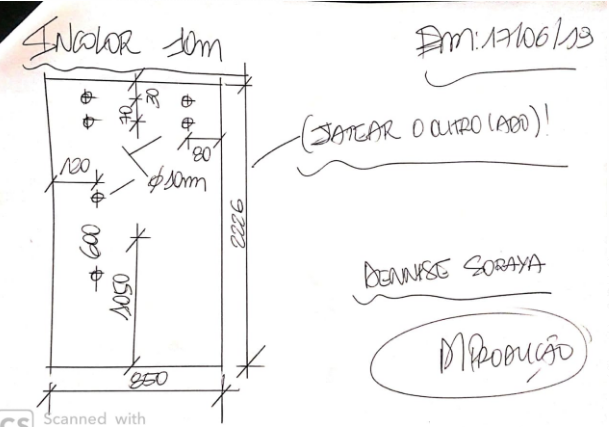 INCOLOR 10m
EM: 17/06/19
30
70
80
(JATEAR O OUTRO LADO)!
120
Ø10mm
2226
600
1050
DENNISE SORAYA
P/PRODUÇÃO
850
CS Scanned with